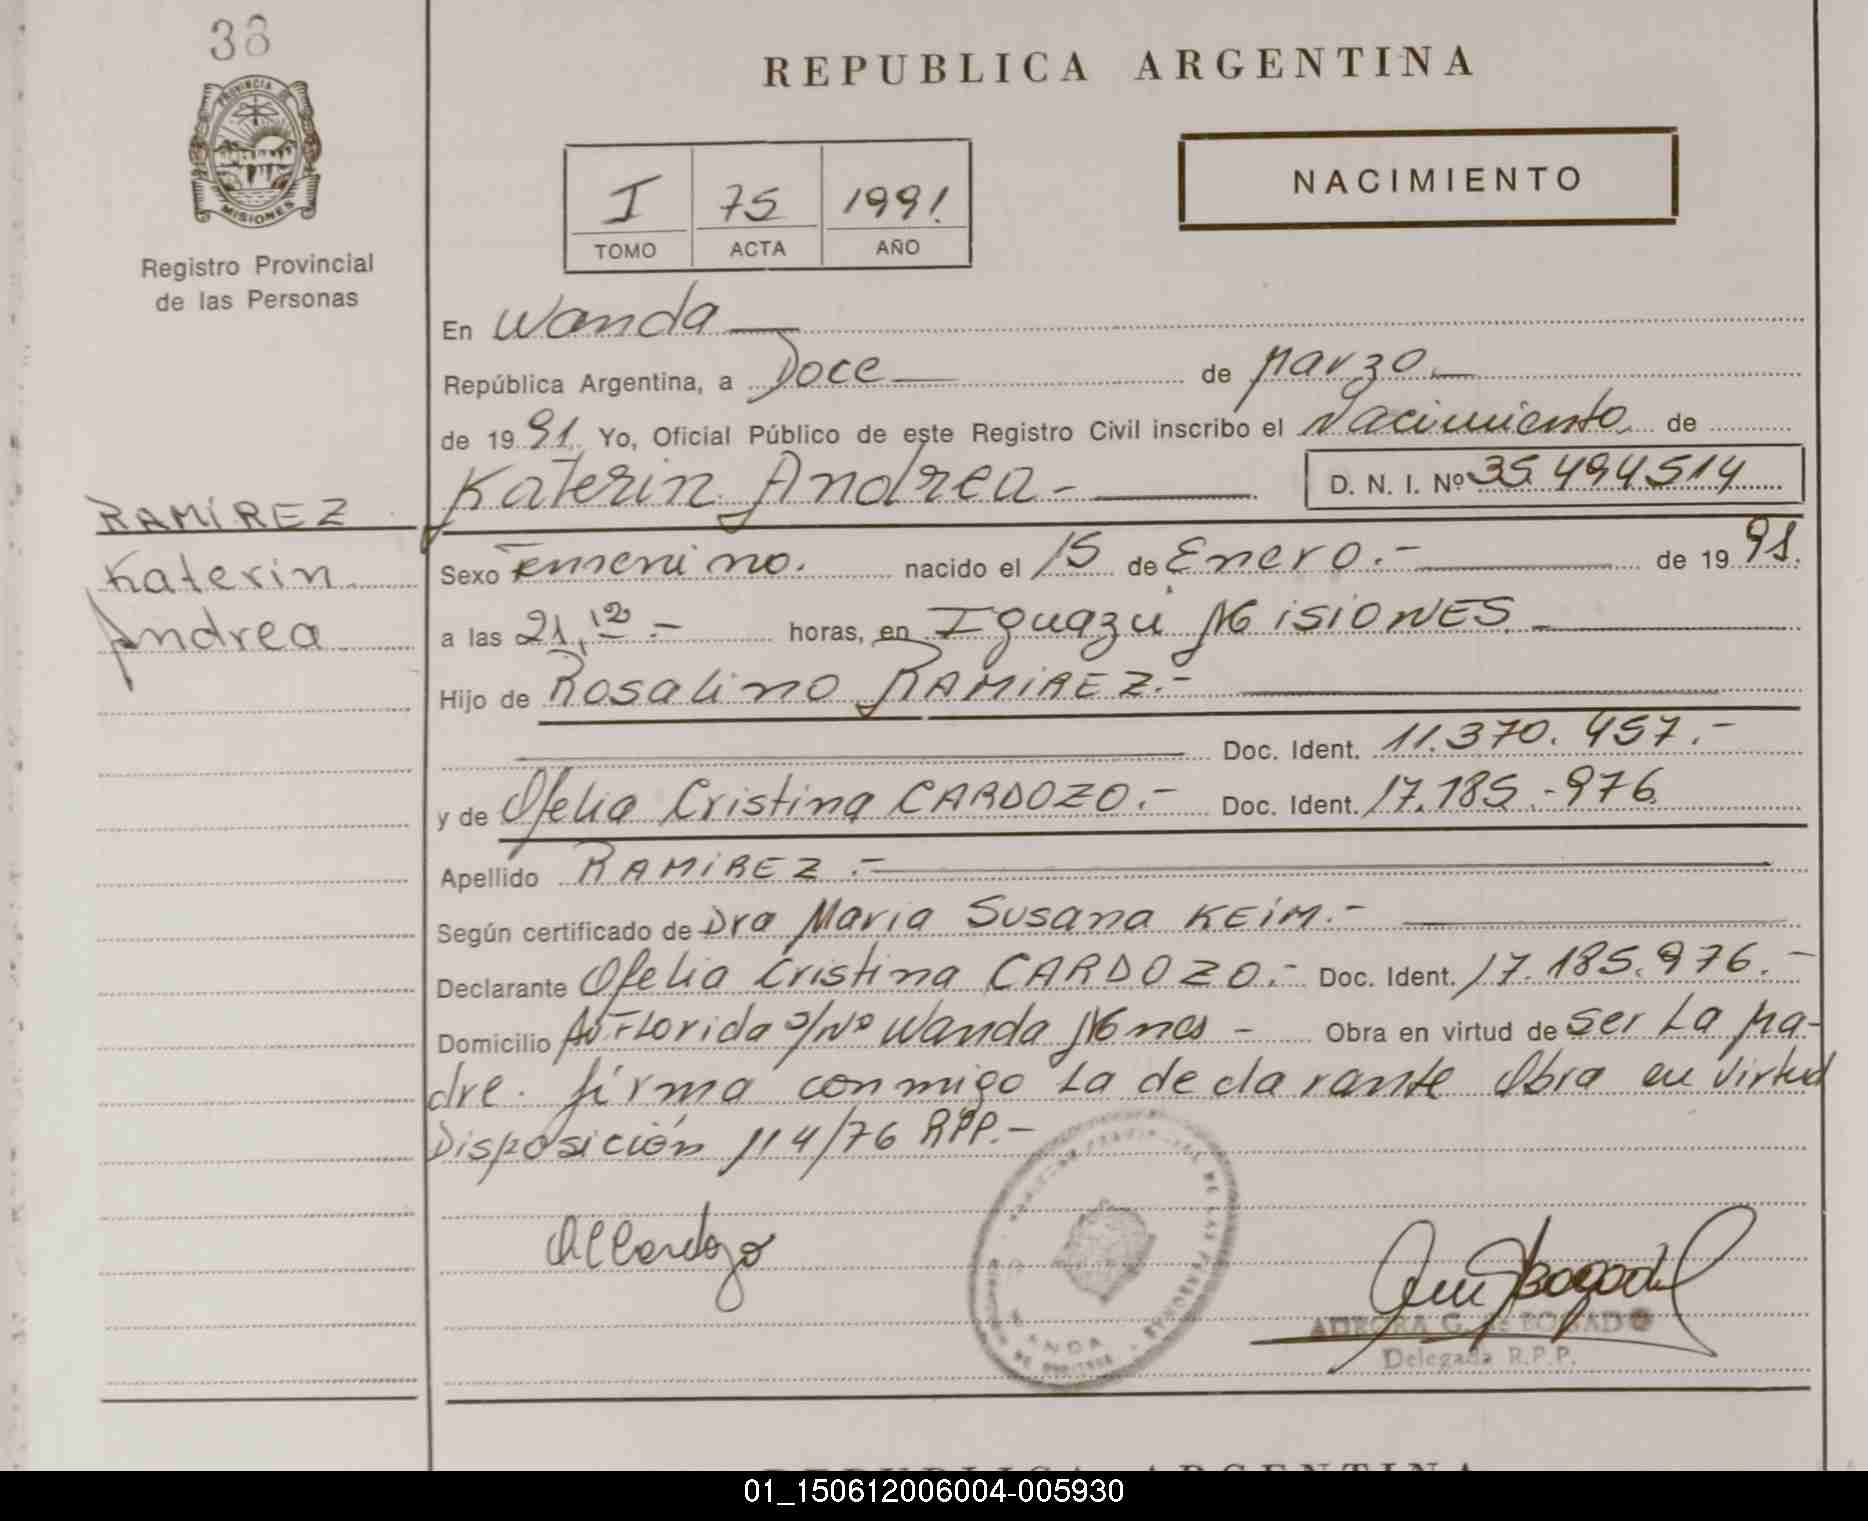 38
PROVINCIA DE
MISIONES
Registro Provincial
de las Personas
REPUBLICA ARGENTINA
NACIMIENTO
I 75 1991
TOMO ACTA AÑO
En Wanda
República Argentina, a Doce de Marzo
de 19 91 Yo, Oficial Público de este Registro Civil inscribo el Nacimiento de
Katerin Andrea - D. N. I. Nº 35.494514
RAMÍREZ
Katerin
Andrea
Sexo Femenino. nacido el 15 de Enero.- de 19 91.
a las 21,12 - horas, en Iguazú MISIONES
Hijo de Rosalino RAMIREZ.-
Doc. Ident. 11.370.457.-
y de Ofelia Cristina CARDOZO.- Doc. Ident. 17.185.-976
Apellido RAMIREZ.-
Según certificado de Dra Maria Susana KEIM.-
Declarante Ofelia Cristina CARDOZO.- Doc. Ident. 17.185.976.-
Domicilio Av Florida S/Nº Wanda Mnes - Obra en virtud de ser La Ma-
dre. firma conmigo La declarante Obra en virtud
Disposición 114/76 RPP.-
OCCardozo
WANDA
AURORA G. de BOGADO
Delegada R.P.P.
REPUBLICA ARGENTINA
01_150612006004-005930